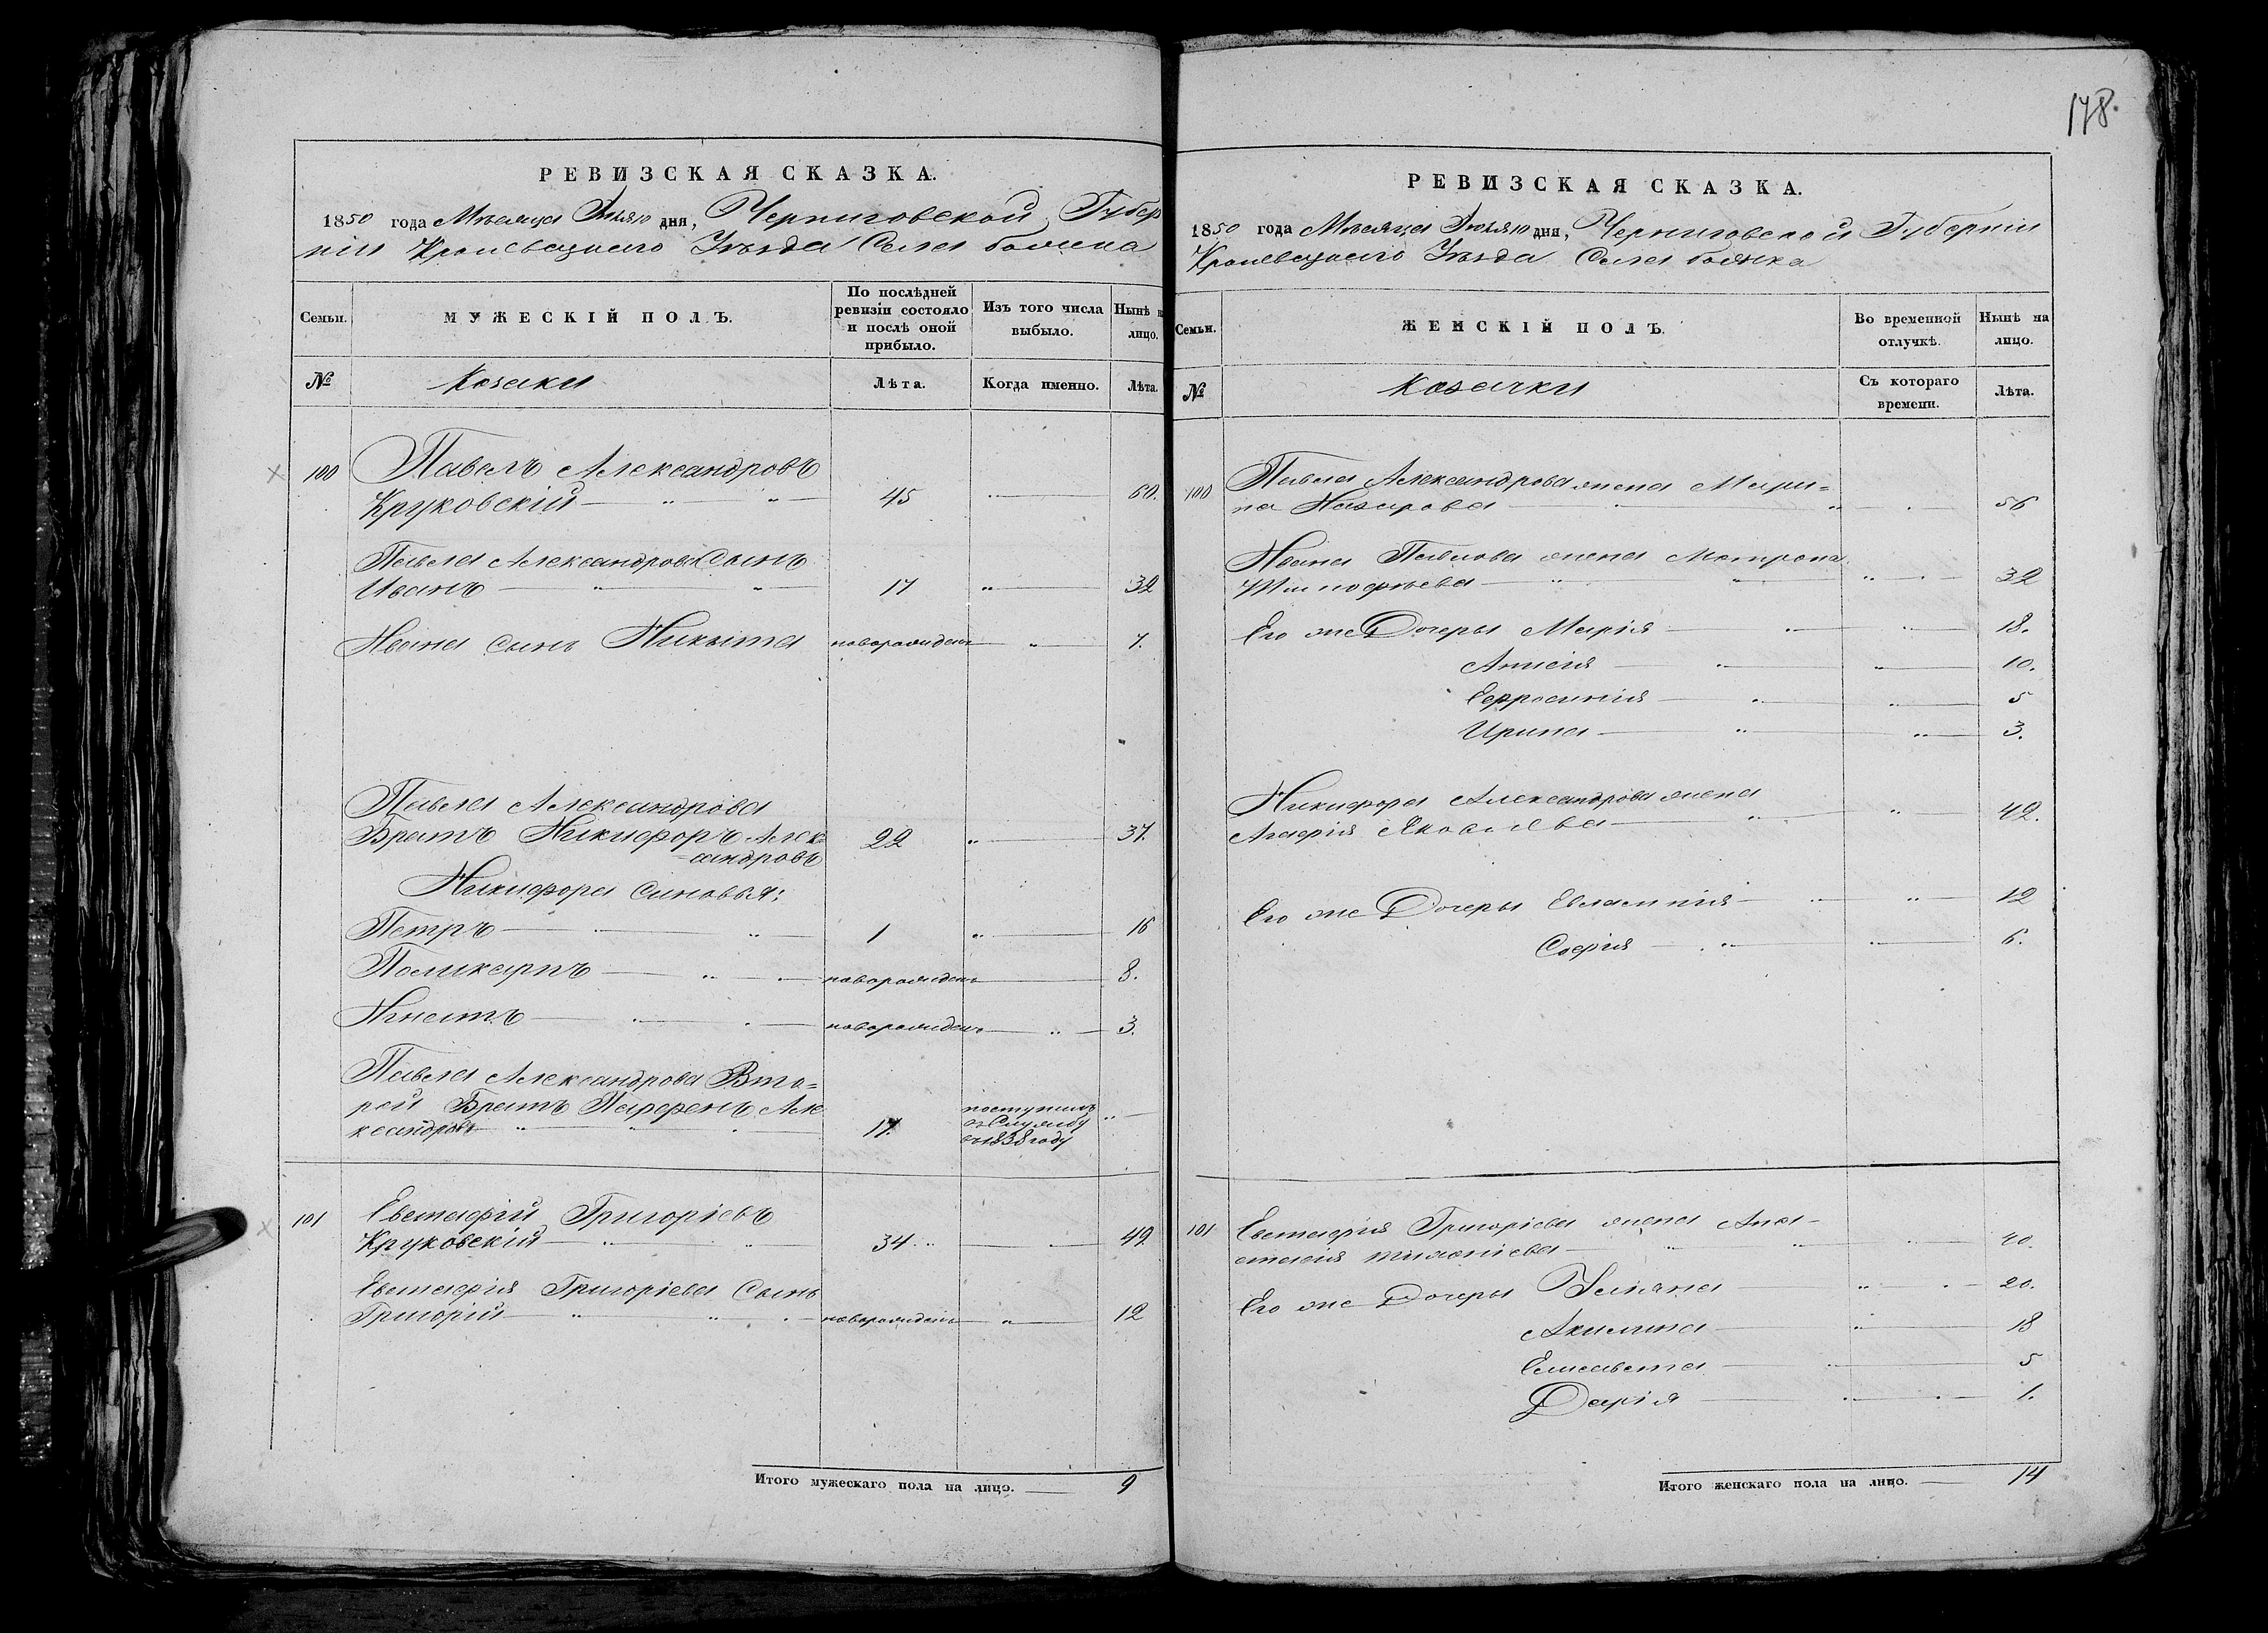 178.
РЕВИЗСКАЯ СКАЗКА.
1850 года Мѣсяца Июля 10 дня, Черниговской Губер
ніи Кролевецкаго Уѣзда Села
Семьи.
МУЖЕСКІЙ ПОЛЪ.
По послѣдней
ревизіи состояло
и послѣ оной
прибыло.
Изъ того числа
выбыло.
Нынѣ н
лицо.
№
Козаки
Лѣта.
Когда именно.
Лѣта.
100 Павелъ Александровъ
Круковскій 45 60.
Павла Александрова Сынъ
Иванъ 17 32
Ивана Сынъ Никита новорожденъ 7.
Павла Александрова
Братъ Никифоръ Алек= 22 37.
=андровъ
Никифора Синовья:
Петръ 1 16
Поликарпъ новорожденъ 8.
Игнатъ новорожденъ 3.
Павла Александрова Вто=
рой Братъ Парфенъ Але поступилъ
ксандровъ 17. въ Службу
въ 1838 году
101 Евстафій Григоріевъ
Круковскій 34 49
Евстафія Григоріева Сынъ
Григорій новорожденъ 12
Итого мужескаго пола на лицо. 9
РЕВИЗСКАЯ СКАЗКА.
1850 года Мѣсяца Июля 10 дня, Черниговской Губерніи
Кролевецкаго Уѣзда Села
Семьи.
ЖЕНСКІЙ ПОЛЪ.
Во временной
отлучкѣ.
Нынѣ на
лицо.
№
Козачки
Съ котораго
времени.
Лѣта.
100 Павла Александрова жена Мари=
на Назарова 56
Ивана Павлова жена Матрона
Тимофѣева 32
Его же Дочеры Марія 18.
Анисія 10.
Ефросинія 5
Ирина 3.
Никифора Александрова жена
Агафія Яковлева 42.
Его же Дочеры Евлампія 12
Софія 6.
101 Евстафія Григоріева жена Ана-
стасія 40.
Его же Дочеры Уліяна 20.
Акилина 18
Елисавета 5
Дарія 1.
Итого женскаго пола на лицо. 14